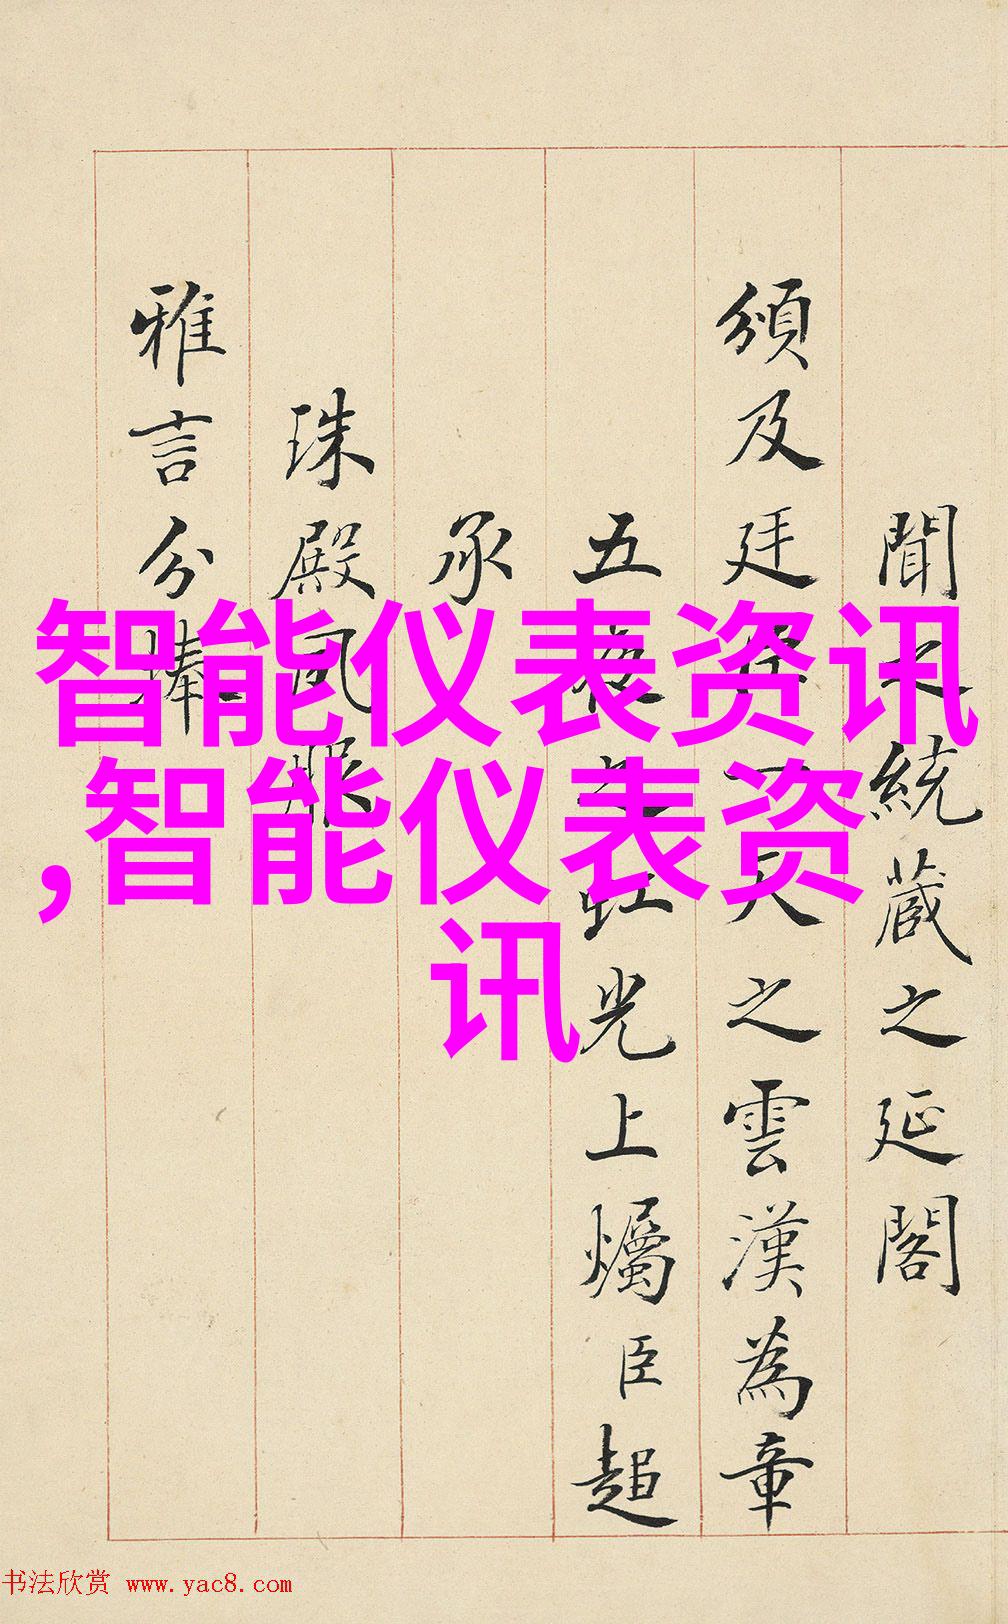 聞之統藏之延閣
頒及廷僚一天之雲漢為章
五夜虹光上燭臣超
承
珠殿夙服
雅言分捧
智能仪表资讯
,智能仪表资
讯
书法欣赏 www.yac8.com